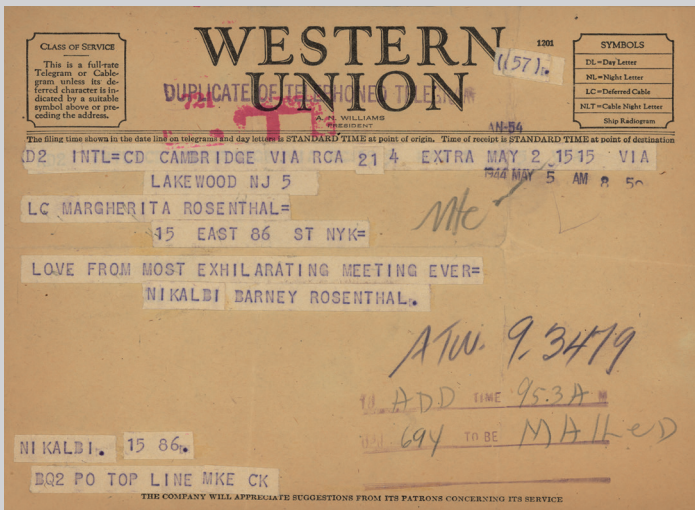 CLASS OF SERVICE
This is a full-rate
Telegram or Cable-
gram unless its de-
ferred character is in-
dicated by a suitable
symbol above or pre-
ceding the address.
WESTERN
UNION
1201
((57).
A. N. WILLIAMS
PRESIDENT
DUPLICATE OF TELEPHONED TELEGRAM
SYMBOLS
DL=Day Letter
NL=Night Letter
LC=Deferred Cable
NLT=Cable Night Letter
Ship Radiogram
AN-54
The filing time shown in the date line on telegrams and day letters is STANDARD TIME at point of origin. Time of receipt is STANDARD TIME at point of destination
D2 INTL=CD CAMBRIDGE VIA RCA 21 4 EXTRA MAY 2 1515 VIA
LAKEWOOD NJ 5
1944 MAY 5 AM 8 50
LC MARGHERITA ROSENTHAL=
15 EAST 86 ST NYK=
LOVE FROM MOST EXHILARATING MEETING EVER=
NIKALBI BARNEY ROSENTHAL.
ATW. 9.3479
ADD TIME 953A M
694 TO BE MAILED
NIKALBI. 15 86.
BQ2 PO TOP LINE MKE CK
THE COMPANY WILL APPRECIATE SUGGESTIONS FROM ITS PATRONS CONCERNING ITS SERVICE